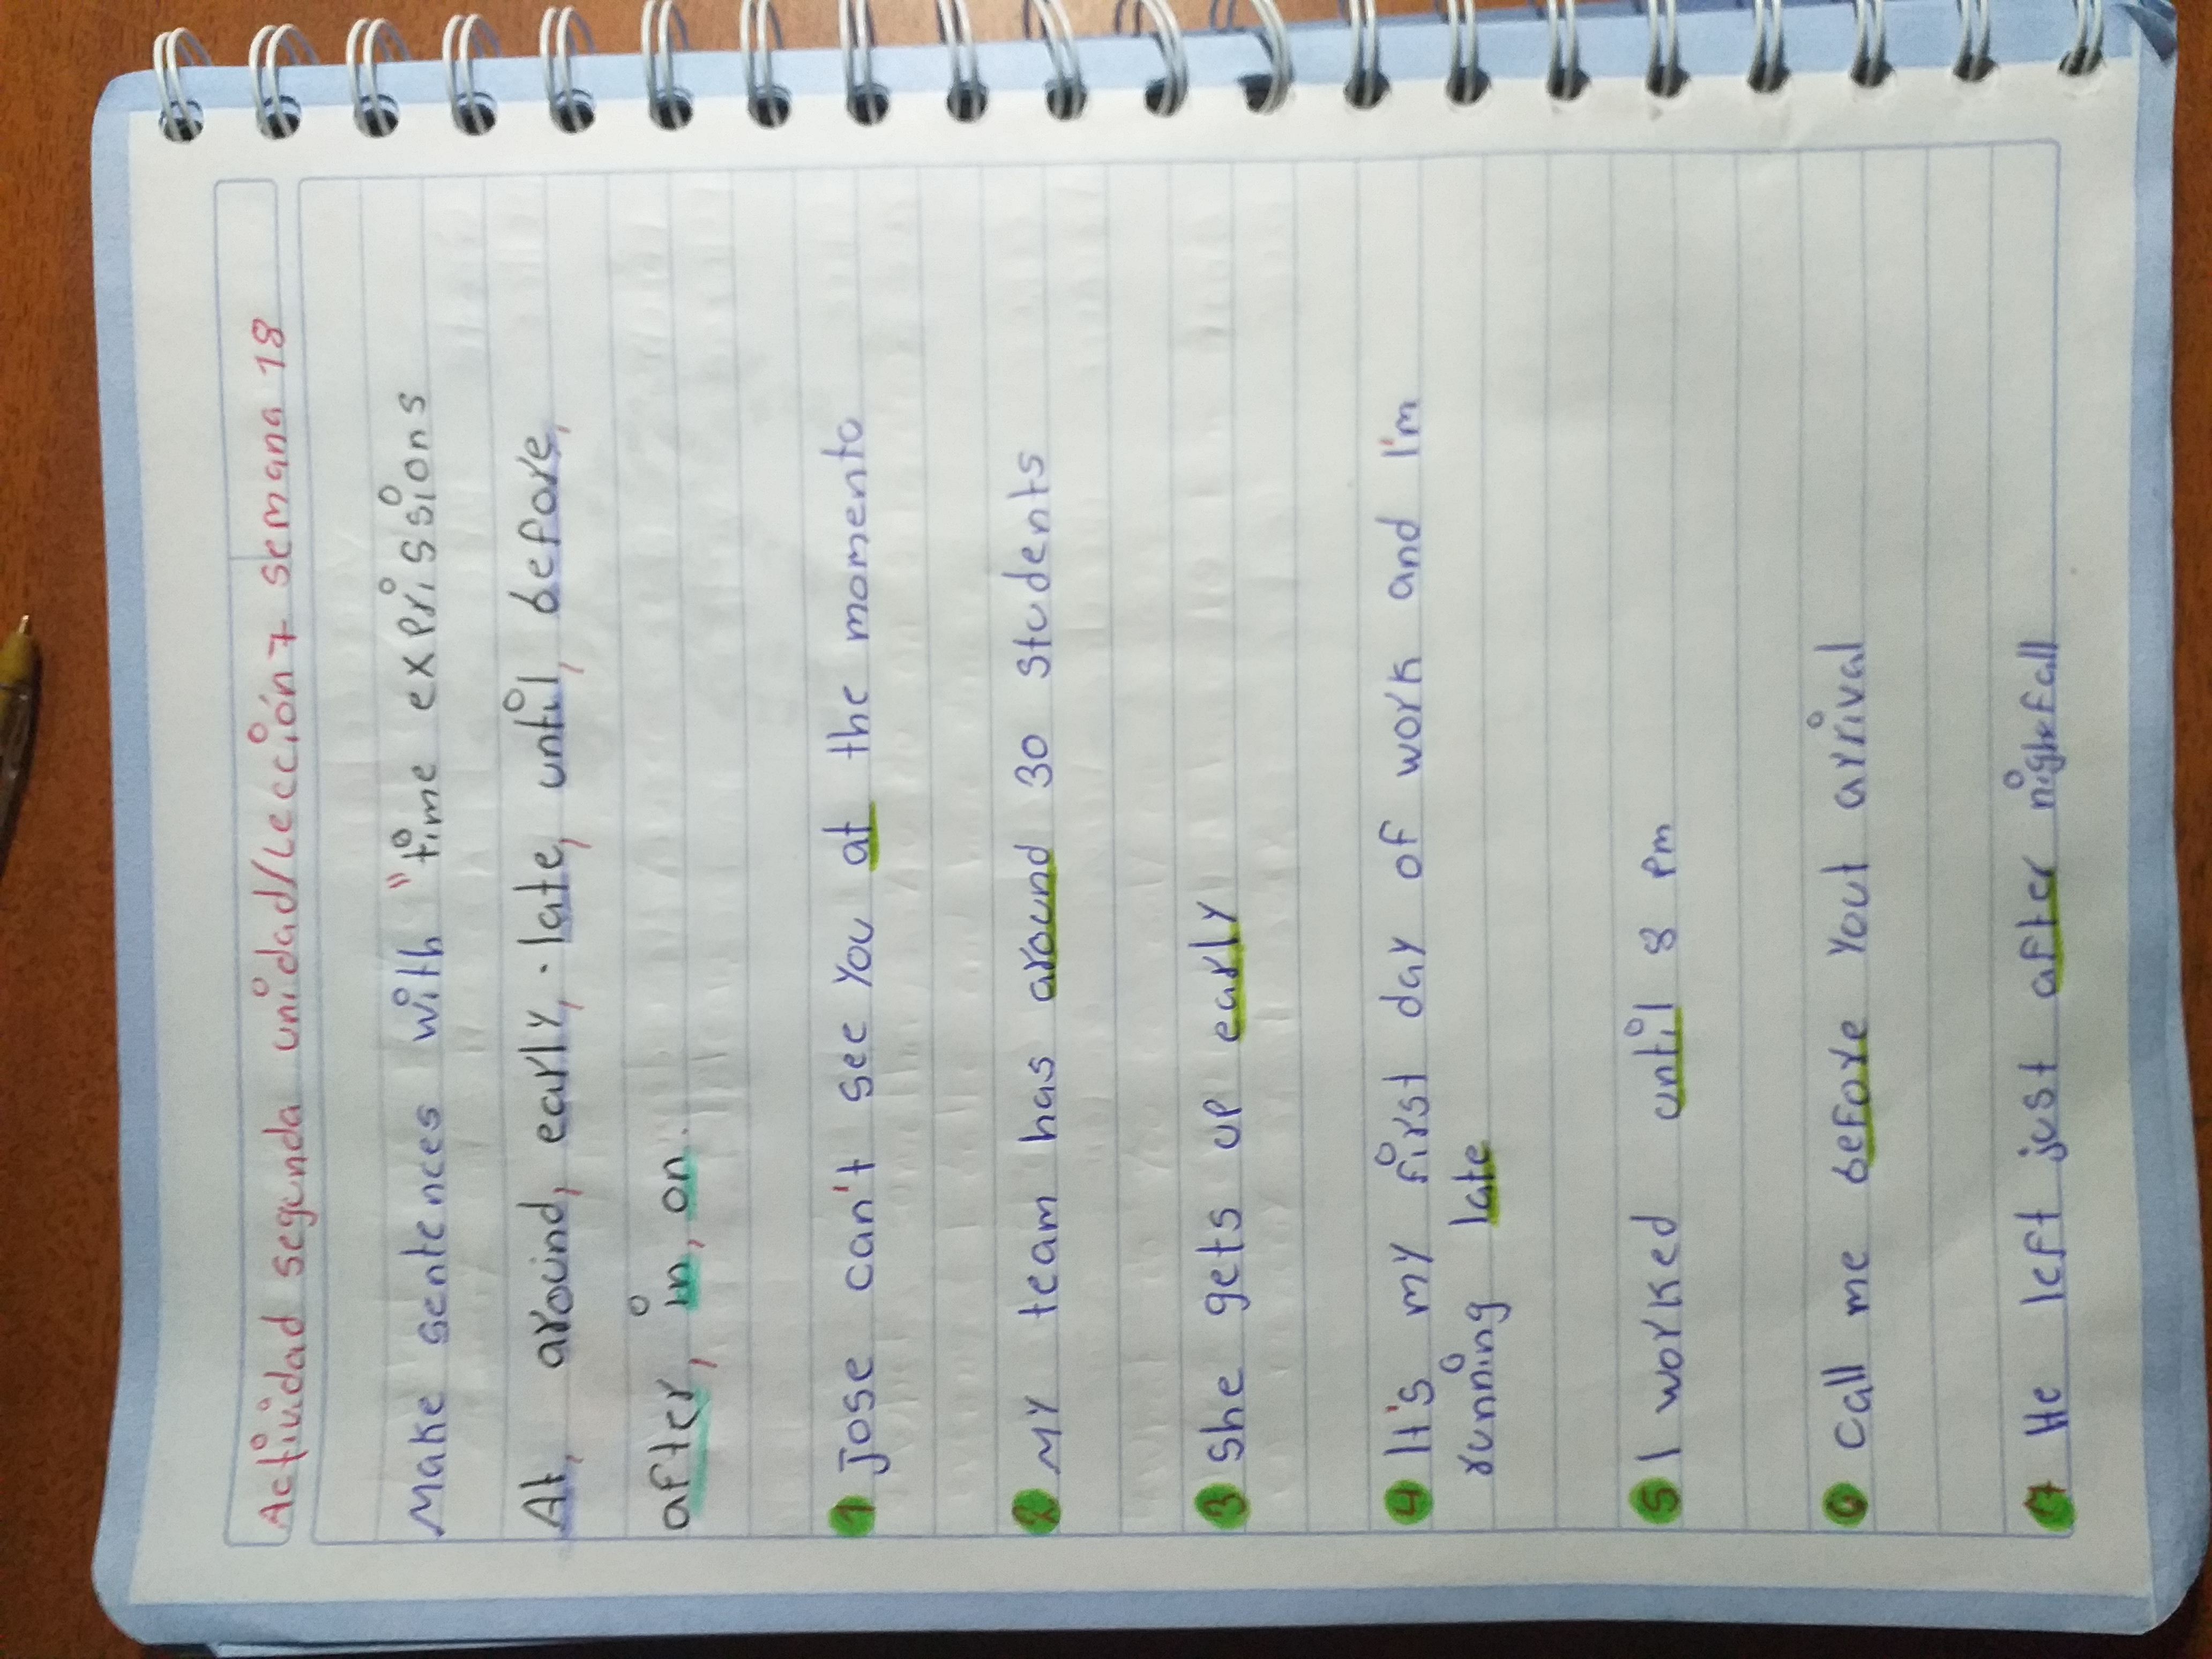 Actividad segunda unidad/Lección 7 semana 18
Make sentences with "time exprissions
At, around, early, late, until, before,
after, in, on.
1 Jose can't see you at the momento
2 My team has around 30 students
3 she gets up early
4 It's my first day of work and I'm
running late
5 I worked until 8 pm
6 call me before yout arrival
7 He left just after nightfall